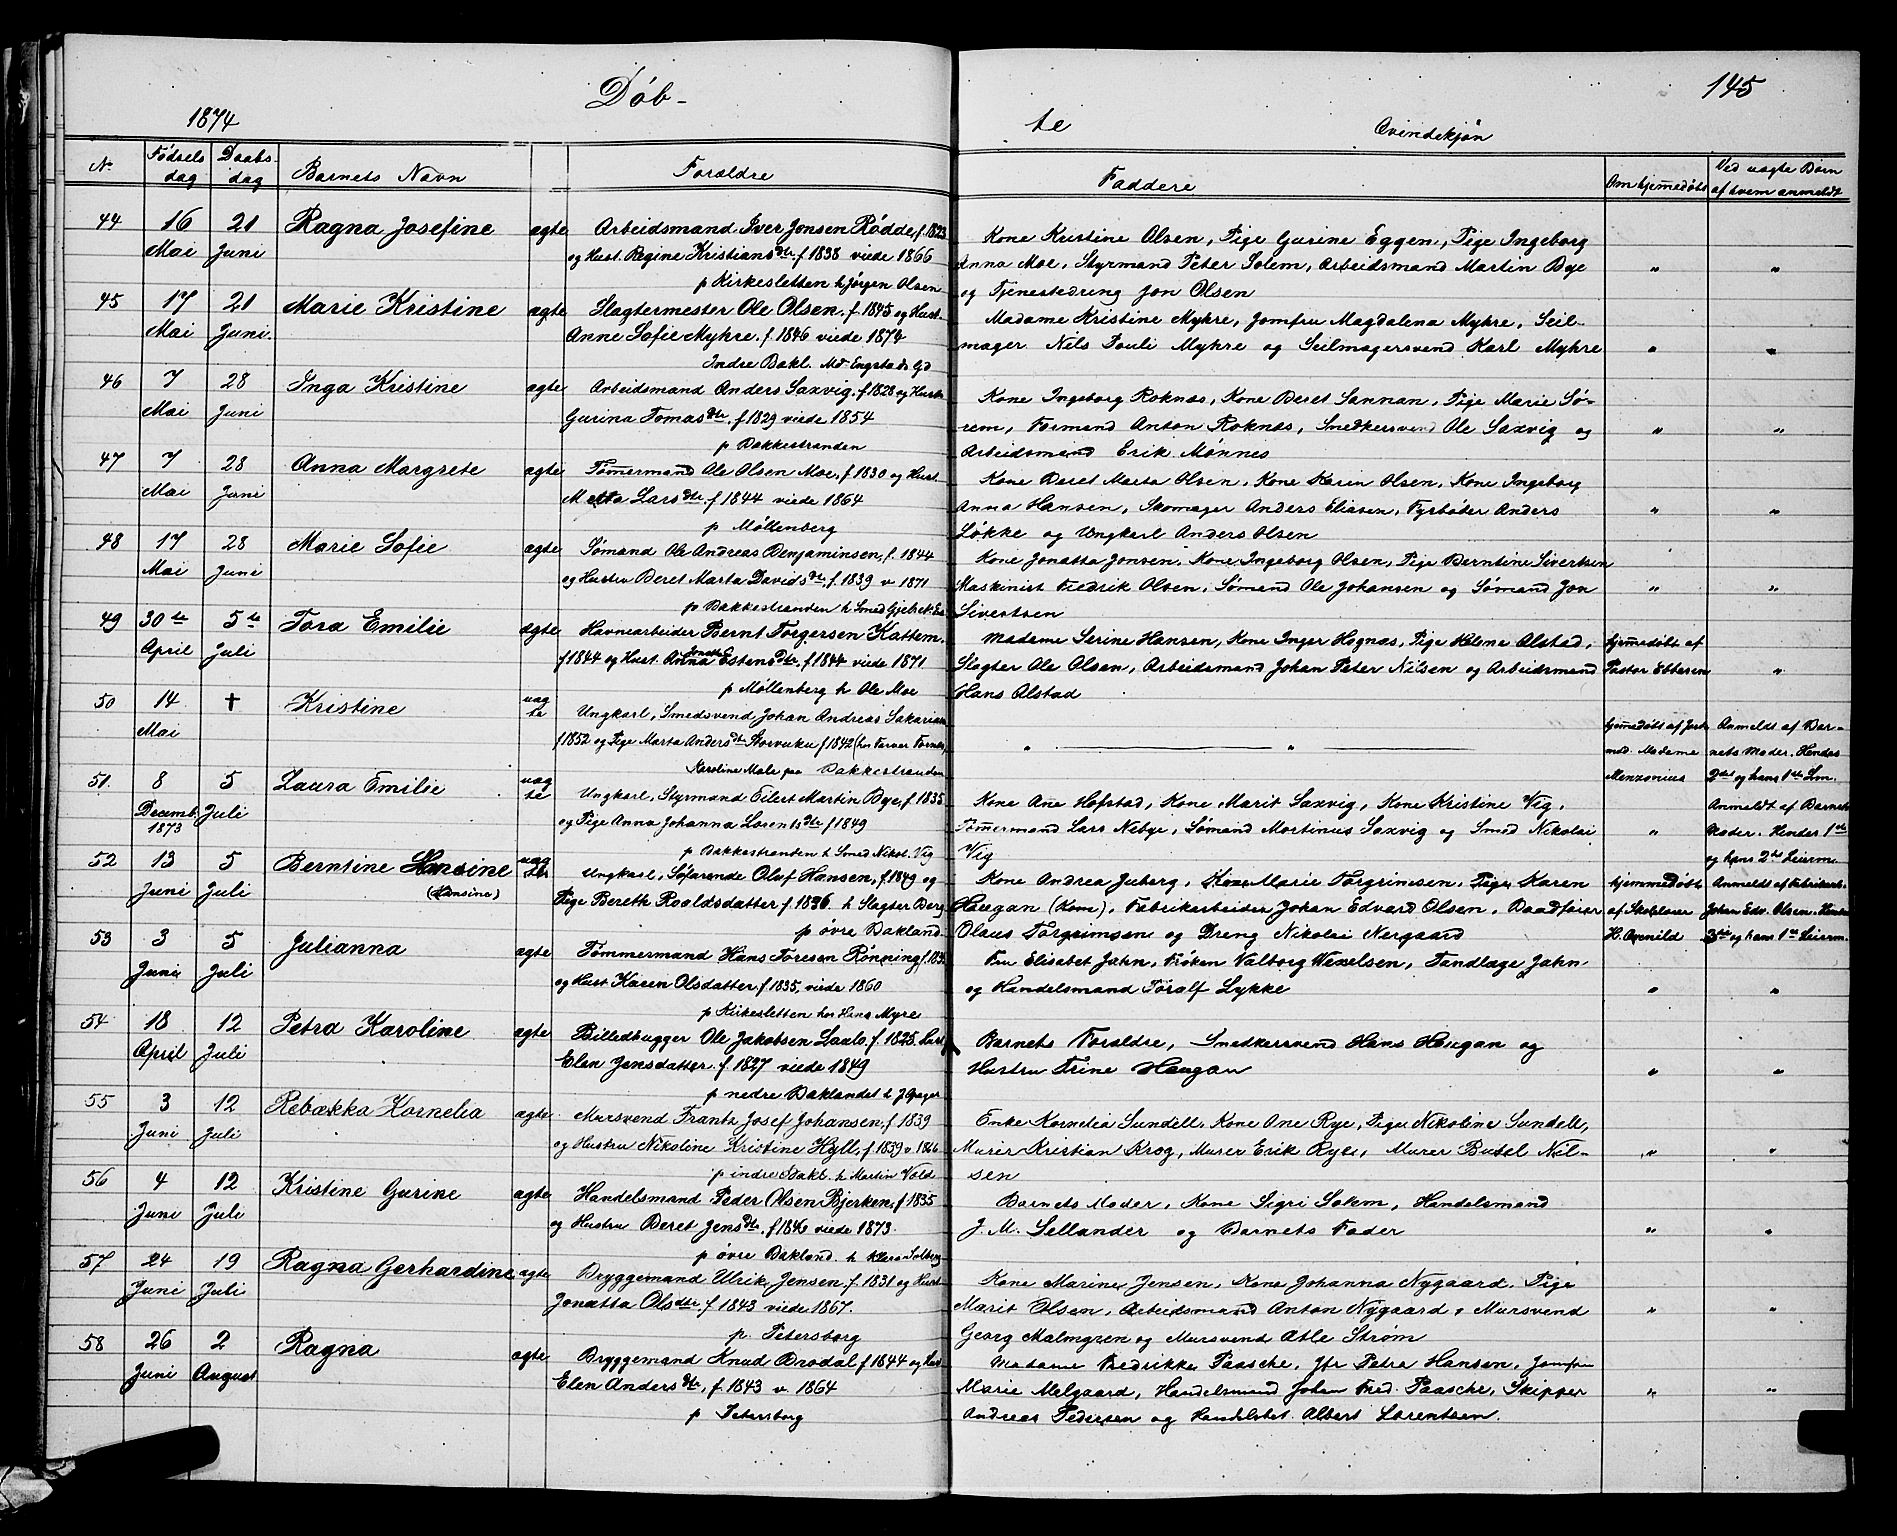 Döb-
te
145
1874
Qvindekjøn
N.
Fødsels dag
Daabs dag
Barnets Navn
Forældre
Faddere
Om hjemmedøbt
Ved uægte Børn af hvem anmeldt
44 16 Mai 21 Juni Ragna Josefine ægte
Arbeidsmand Iver Jonsen Rødde, f. 1823
og Hust. Regine Kristiansdtr. f. 1838 viede 1866
p Kirkesletten h Jørgen Olsen
Kone Kristine Olsen, Pige Gurine Eggen, Pige Ingeborg
Anna Moe, Styrmand Peter Solem, Arbeidsmand Martin Bye
og Tjenestedreng Jon Olsen
" "
45 17 Mai 21 Juni. Marie Kristine ægte
Slagtermester Ole Olsen, f. 1845 og Hust.
Anne Sofie Myhre, f. 1846 viede 1874
Indre Bakl. Md. Engstads Gd
Madame Kristine Myhre, Jomfru Magdalena Myhre, Seil-
mager Nils Pouli Myhre og Seilmagersvend Karl Myhre
" "
46 7 Mai 28 Juni Inga Kristine ægte
Arbeidsmand Anders Saxvig, f. 1828 og Hustr.
Gurina Tomasdtr. f. 1829 viede 1854
p Bakkestranden
Kone Ingeborg Roknæs, Kone Beret Sannan, Pige Marie Sø-
rem, Formand Anton Roknæs, Snedkersvend Ole Saxvig og
Arbeidsmand Erik Mønnes
" "
47 7 Mai 28 Juni Anna Margrete ægte
Tømermand Ole Olsen Moe, f. 1830 og Hust.
Metta Larsdtr. f. 1844 viede 1864
p Møllenberg
Kone Beret Marta Olsen, Kone Karin Olsen, Kone Ingeborg
Anna Hansen, Skomager Anders Eliasen, Fyrbøter Anders
Løkke og Ungkarl Anders Olsen
" "
48 17 Mai 28 Juni Marie Sofie ægte
Sømand Ole Andreas Benjaminsen, f. 1844
og Hustru Beret Marta Davidsdtr. f. 1839 v. 1871
p Bakkestranden h Smed
Kone Jonatta Jonsen, Kone Ingeborg Olsen, Pige Berntine Sivertsen
Maskinist Fredrik Olsen, Sømand Ole Johansen og Sømand Jon
Sivertsen
" "
49 30te April 5te Juli Tora Emilie ægte
Havnearbeider Bernt Torgersen Kattem.
f 1844 og Hust. Anna Estensdtr. f. 1844 viede 1871
p Møllenberg h Ole Moe
Madame Serine Hansen, Kone Inger Hognæs, Pige Helene Alstad,
Slagter Ole Olsen, Arbeidsmand Johan Peter Nilsen og Arbeidsmand
Hans Alstad
hjemmedøbt af
Pastor Ebbesen
"
50 14 Mai † Kristine uægte
Ungkarl, Smedsvend Johan Andreas Sakariasen
f 1852 og Pige Marta Andersdtr. Storvuku f 1842 (hos Farver
Karoline Male paa Bakkestranden
" "
hjemmedøbt af Jord-
mod. Madame
Menzonius
Anmeldt af Bar-
nets Moder, Hendes
2det og hans 1ste
51. 8 Decemb. 1873 5 Juli Laura Emilie uægte
Ungkarl, Styrmand Eilert Martin Bye, f. 1835
og Pige Anna Johanna Lorentsdtr f 1849
p Bakkestranden h Smed Nikol. Vig
Kone Ane Hofstad, Kone Marit Saxvig, Kone Kristine Vig,
Tømermand Lars Nebye, Sømand Martinus Saxvig og Smed Nikolai
Vig
"
Anmeldt af Barnets
Moder. Hendes 1ste
og hans 2det Leierm.
52 13 Juni 5 Juli Berntine Hansine (Hansine) uægte
Ungkarl, Søfarende Oluf Hansen, f. 1849 og
Pige Bereth Roaldsdatter f. 1836. h Slagter Berg
p øvre Bakland
Kone Andrea Juberg, Kone Marie Torgrimsen, Pige Karen
Haugan (Kone), Fabrikarbeider Johan Edvard Olsen, Baadfører
Olaus Torgrimsen og Dreng Nikolai Nergaard
hjemmedøbt
af Skolelærer
H. Oxenild
Anmeldt af Fabrikarb.
Johan Edv. Olsen. Hendes
3die og hans 1ste Leierm.
53 3 Juni 5 Juli Julianna ægte
Tømmermand Hans Toresen Rønning,
og Hust Karen Olsdatter, f. 1835, viede 1860
p Kirkesletten hos Hans Myre
Fru Elisabet Jahn, Frøken Valborg Wexelsen, Tandlæge Jahn
og Handelsmand Toralf Lykke
" "
54 18 April 12 Juli Petra Karoline ægte
Billedhugger Ole Jakobsen Laalo. f. 1825. Hust
Elen Jensdatter. f. 1827 viede 1849
p nedre Baklandet h
Barnets Forældre, Snedkersvend Hans Haugan og
Hustru Trine Haugan
" "
55 3 Juni 12 Juli Rebækka Kornelia ægte
Mursvend Frantz Josef Johansen, f. 1839
og Hustru Nikoline Kristine Hyll, f. 1839 v. 1866
p indre Bakl. h Martin Vold
Enke Kornelia Sundell, Kone Ane Rye, Pige Nikoline Sundell,
Murer Kristian Krog, Murer Erik Rye, Murer Butel Nil-
sen
" "
56 4 Juni 12 Juli Kristine Gurine ægte
Handelsmand Peder Olsen Bjerken, f. 1835
og Hustru Beret Jensdtr. f. 1846 viede 1873.
p øvre Bakland. h
Barnets Moder, Kone Sigri Solem, Handelsmand
J. M. Sellander og Barnets Fader
" "
57 24 Juni 19 Juli Ragna Gerhardine ægte
Bryggemand Ulrik Jensen, f. 1831 og Hust.
Jonatta Olsdtr. f. 1843 viede 1867.
p. Petersborg
Kone Marine Jensen, Kone Johanna Nygaard, Pige
Marit Olsen, Arbeidsmand Anton Nygaard, Mursvend
Georg Malmgren og Mursvend Atle Strøm
" "
58 26 Juni 2 August Ragna ægte
Bryggemand Knud Brodal f 1844 og Hust
Elen Andersdtr, f. 1843 v. 1864
p Petersborg
Madame Fredrikke Paasche, Jfr Petra Hansen, Jomfru
Marie Melgaard, Handelsmand Johan Fred. Paasche, Skipper
Andreas Pedersen og Handelsbet. Albert Lorentsen.
" "